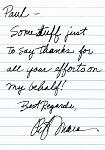 Paul —
Some stuff just
to say thanks for
all your efforts on
my behalf!
Best Regards,